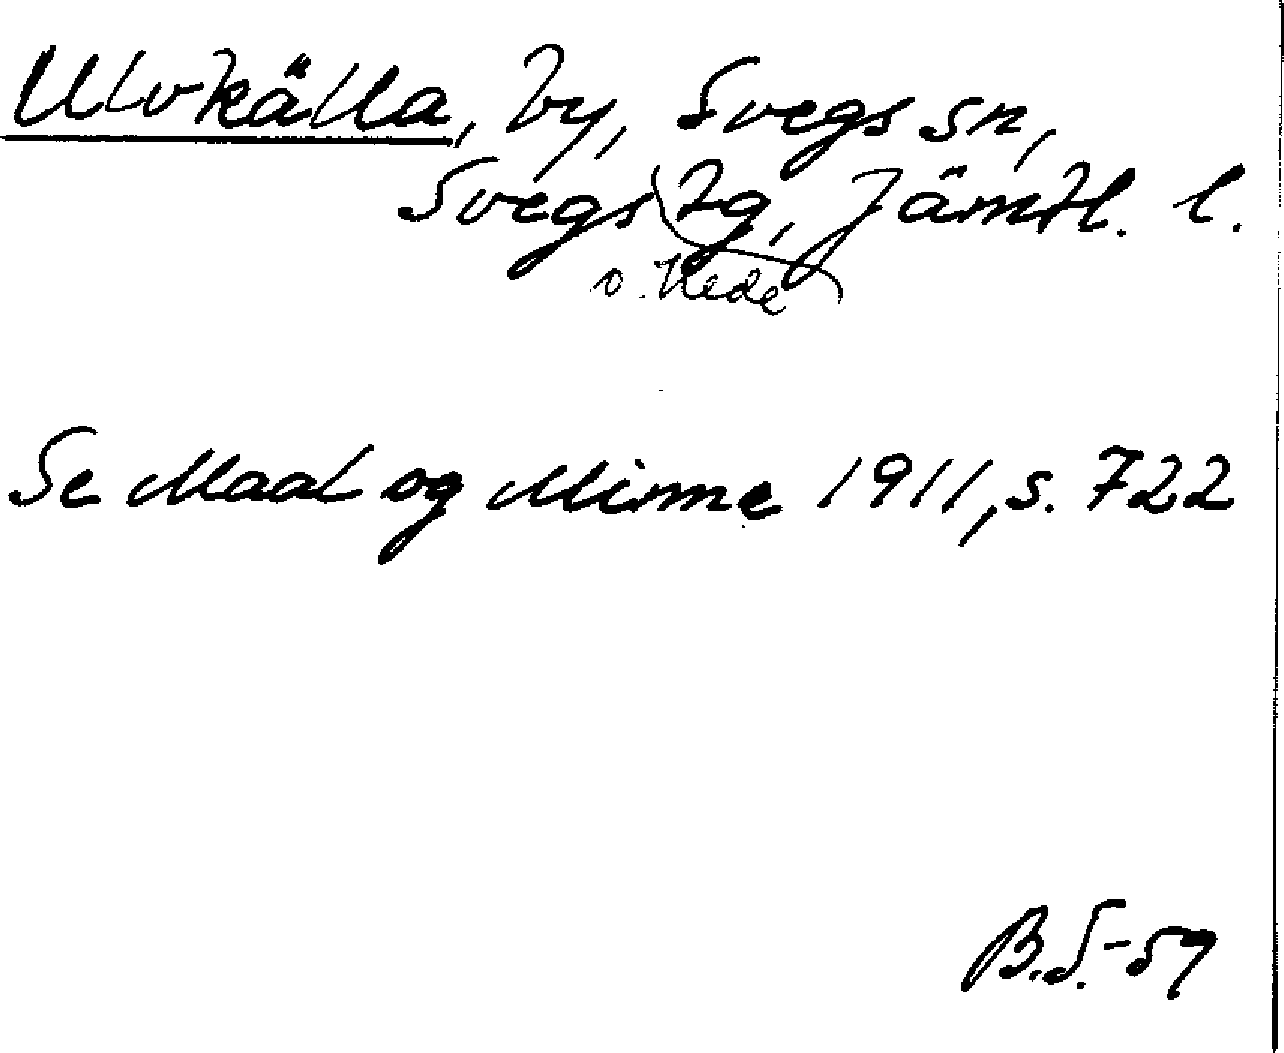 Ulvkälla, by, Svegs sn,
Svegs tg, Jämtl. l.
o. Hede
Se Maal og Minne 1911, s. 722
B.S.-59